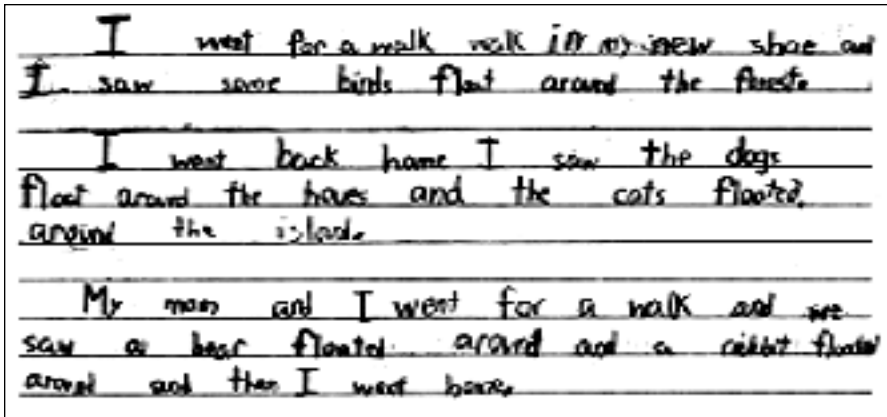 I went for a walk walk in my new shoe and
I saw some birds float around the forest.
I went back home I saw the dogs
float around the houes and the cats floated.
around the island.
My mom and I went for a walk and we
saw a bear floated around and a rabbit floated
around and then I went home.